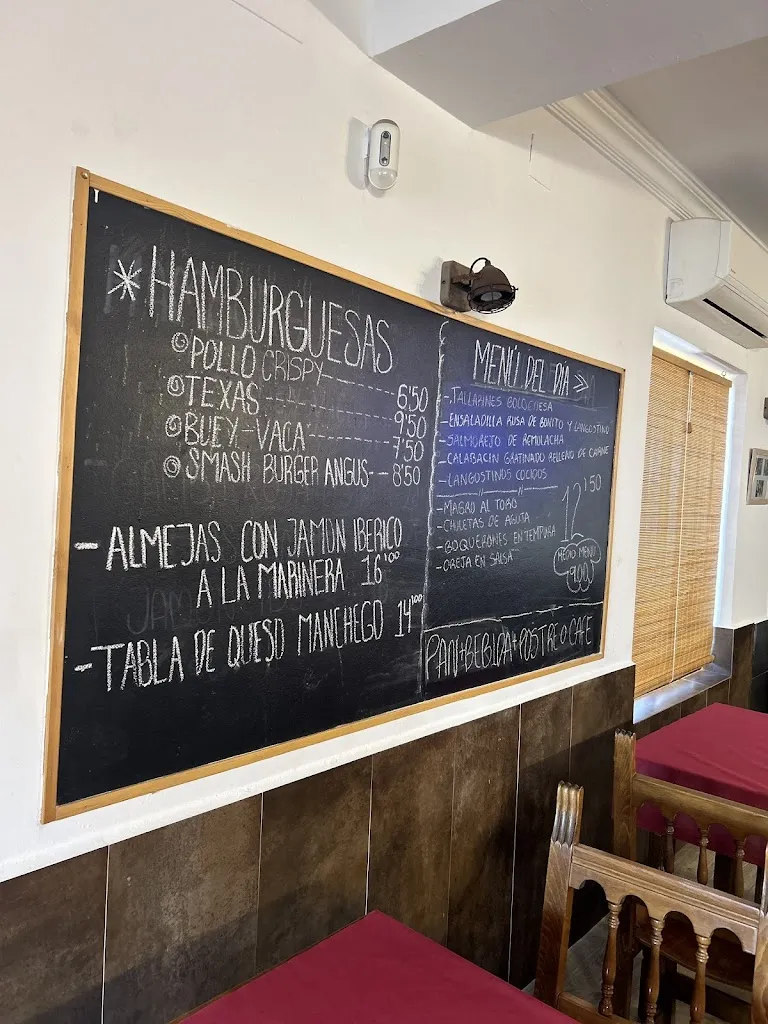 * HAMBURGUESAS
POLLO CRISPY 6'50
TEXAS 9'50
BUEY-VACA 7'50
SMASH BURGER ANGUS 8'50
- ALMEJAS CON JAMON IBERICO
A LA MARINERA 16'00
- TABLA DE QUESO MANCHEGO 14'00
MENÚ DEL DIA
- TALLARINES BOLOGNESA
- ENSALADILLA RUSA DE BONITO Y LANGOSTINO
- SALMOREJO DE REMOLACHA
- CALABACIN GRATINADO RELLENO DE CARNE
- LANGOSTINOS COCIDOS
- MAGRO AL TORO
- CHULETAS DE AGUJA
- BOQUERONES EN TEMPURA
- OREJA EN SALSA
12'50
MEDIO MENU
9,00
PAN+BEBIDA+POSTRE O CAFE